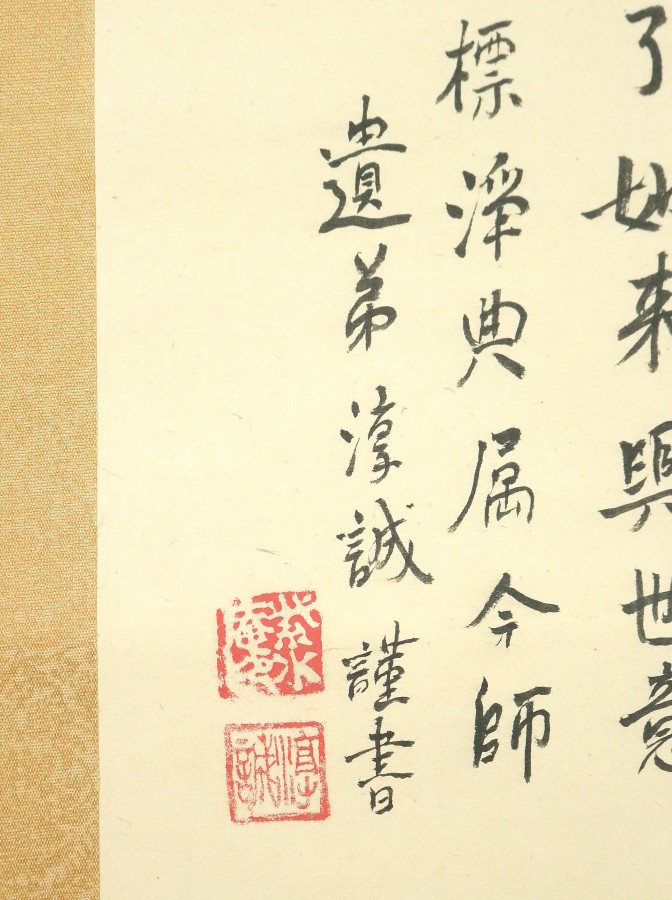 了妙来興世意
標淨典属今師
遺弟淳誠謹書
淳誠